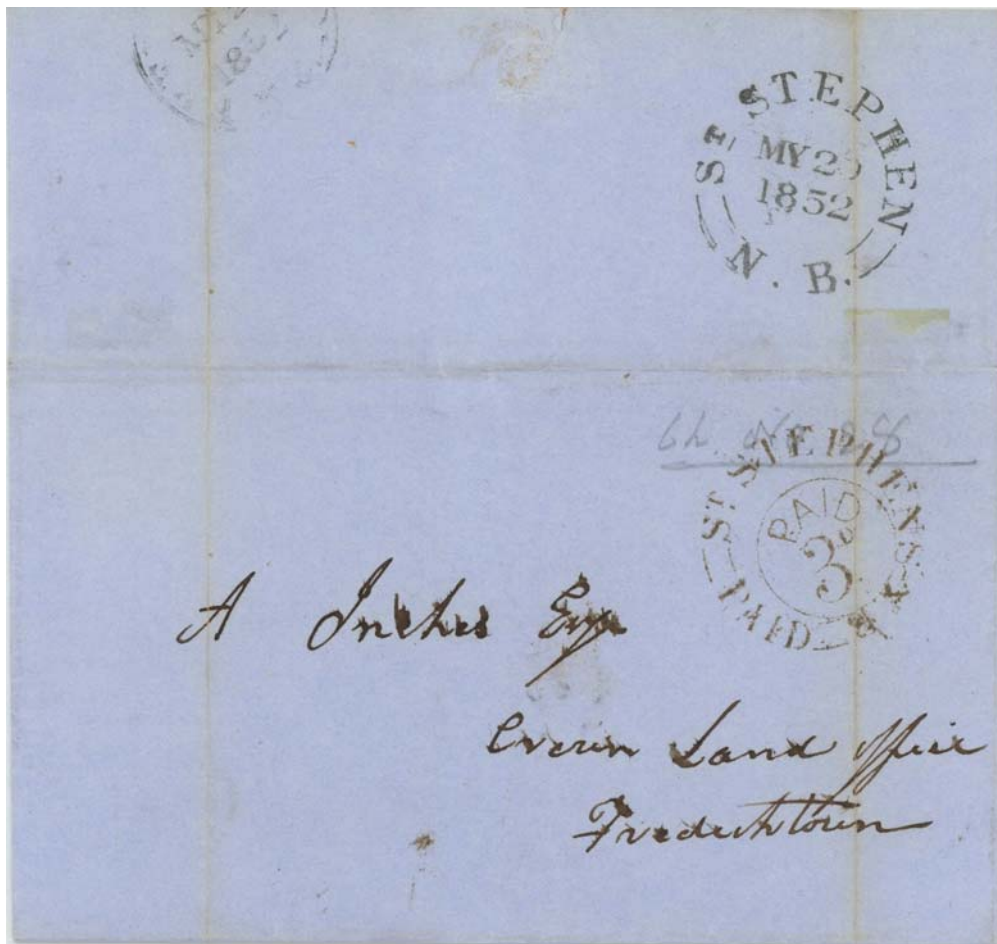 1852
St. STEPHEN
MY 29
1852
N. B.
St STEPHENS N B
PAID
3d
PAID
A Inches Esqr
Crown Land Office
Fredericktown